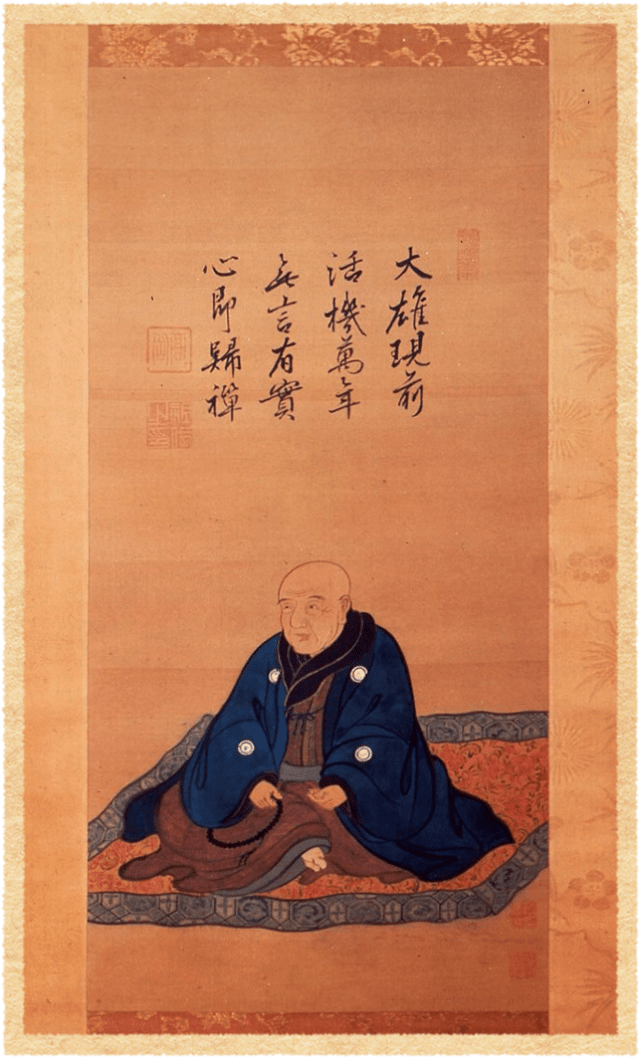 大雄現前
活機萬年
無言有實
心即歸禪